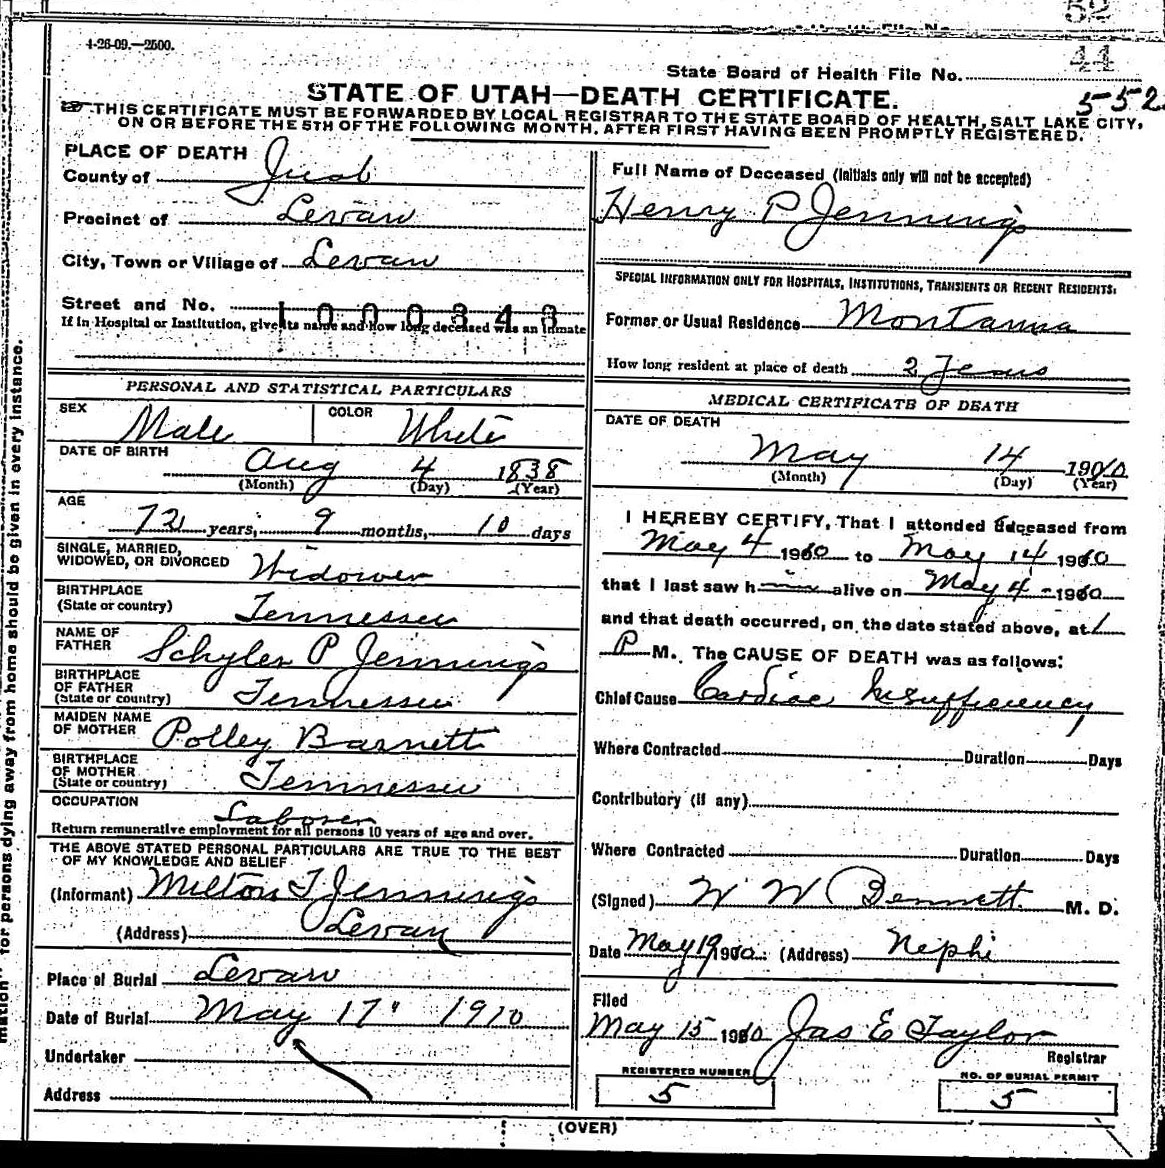 52
4-26-09.—2500.
44
State Board of Health File No.
552
STATE OF UTAH—DEATH CERTIFICATE.
THIS CERTIFICATE MUST BE FORWARDED BY LOCAL REGISTRAR TO THE STATE BOARD OF HEALTH, SALT LAKE CITY,
ON OR BEFORE THE 5TH OF THE FOLLOWING MONTH, AFTER FIRST HAVING BEEN PROMPTLY REGISTERED.
PLACE OF DEATH
County of Juab
Precinct of Levan
City, Town or Village of Levan
Street and No.
1000343
If in Hospital or Institution, give its name and how long deceased was an inmate
PERSONAL AND STATISTICAL PARTICULARS
SEX Male COLOR White
DATE OF BIRTH Aug 4 1838
(Month) (Day) (Year)
AGE
72 years, 9 months, 10 days
SINGLE, MARRIED,
WIDOWED, OR DIVORCED Widower
BIRTHPLACE
(State or country) Tennessee
NAME OF
FATHER Schyler P Jennings
BIRTHPLACE
OF FATHER
(State or country) Tennessee
MAIDEN NAME
OF MOTHER Polley Barnett
BIRTHPLACE
OF MOTHER
(State or country) Tennessee
OCCUPATION Laborer
Return remunerative employment for all persons 10 years of age and over.
THE ABOVE STATED PERSONAL PARTICULARS ARE TRUE TO THE BEST
OF MY KNOWLEDGE AND BELIEF
(Informant) Milton T Jennings
(Address) Levan
Place of Burial Levan
Date of Burial May 17" 1910
Undertaker
Address
Full Name of Deceased (Initials only will not be accepted)
Henry P Jennings
SPECIAL INFORMATION ONLY FOR HOSPITALS, INSTITUTIONS, TRANSIENTS OR RECENT RESIDENTS:
Former or Usual Residence Montanna
How long resident at place of death 2 Years
MEDICAL CERTIFICATE OF DEATH
DATE OF DEATH
May 14 1910
(Month) (Day) (Year)
I HEREBY CERTIFY, That I attended deceased from
May 4 1910 to May 14 1910
that I last saw him alive on May 4 - 1910
and that death occurred, on the date stated above, at 1
P M. The CAUSE OF DEATH was as follows:
Chief Cause Cardiac Insufficiency
Where Contracted Duration Days
Contributory (if any)
Where Contracted Duration Days
(Signed) W W Bennett M. D.
Date May 19 1910: (Address) Nephi
Filed
May 15 1910 Jas E Taylor
Registrar
REGISTERED NUMBER
5
NO. OF BURIAL PERMIT
5
(OVER)
for persons dying away from home should be given in every instance.